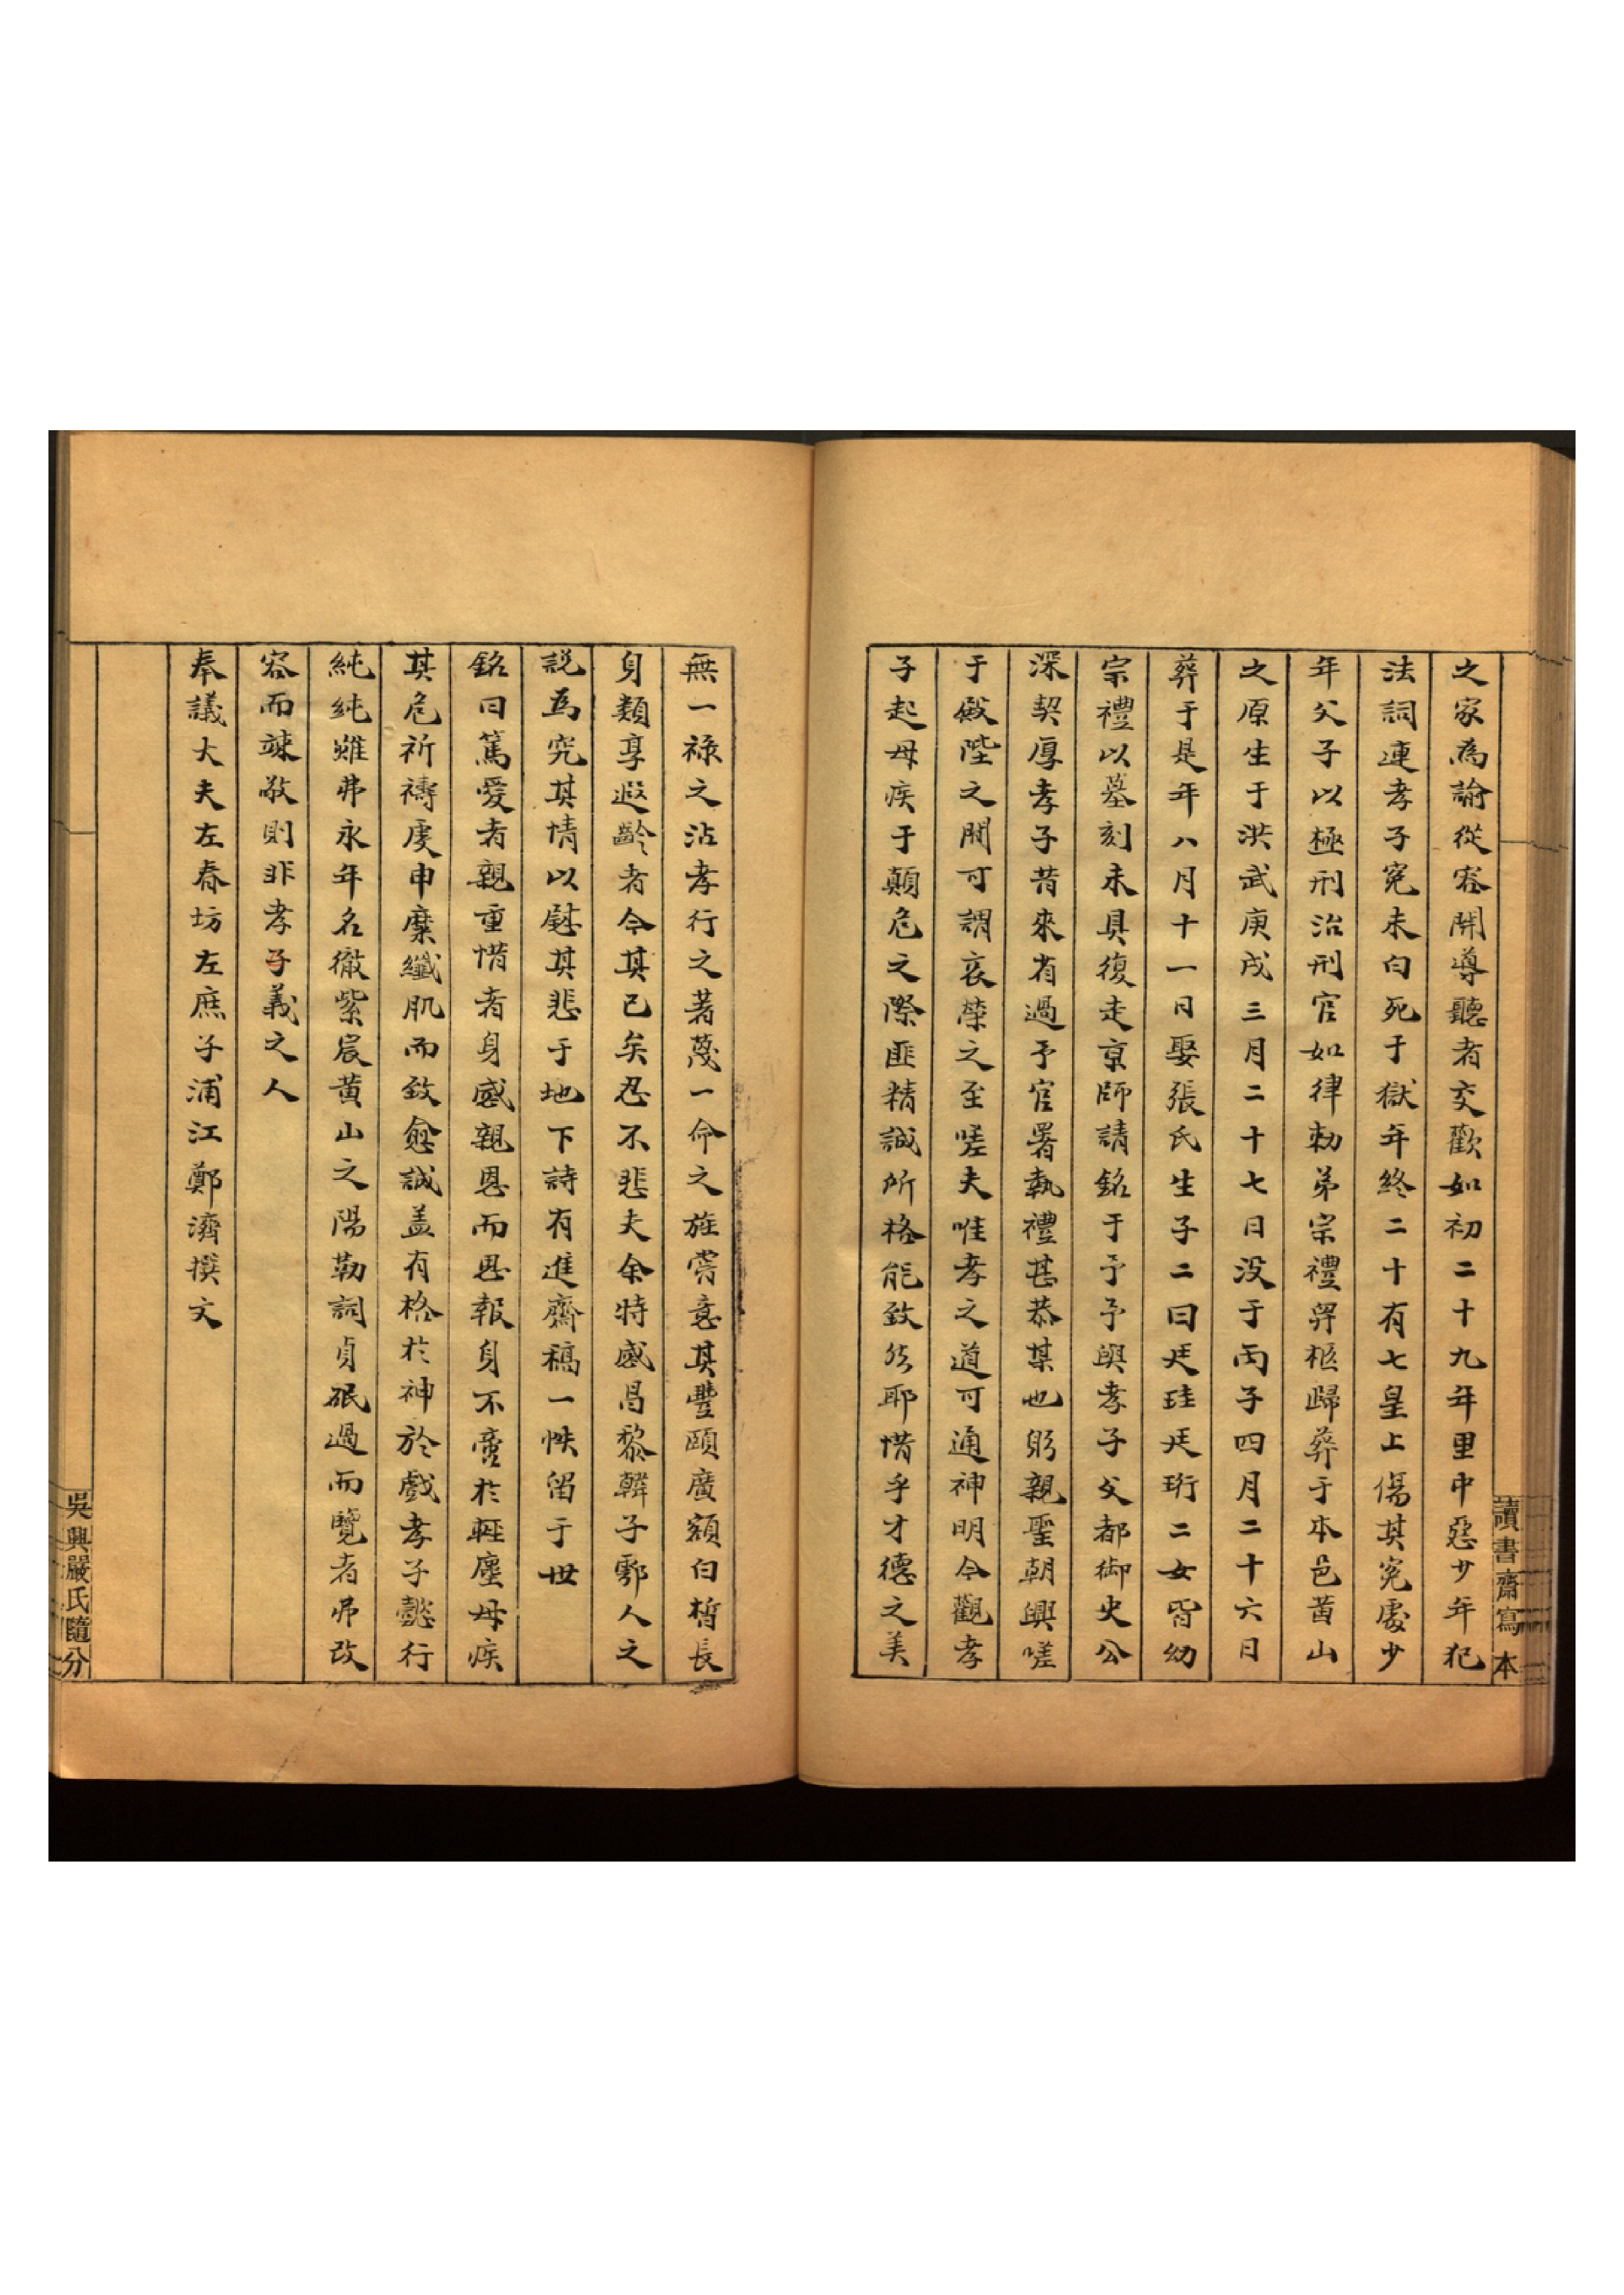 讀書齋寫本
之家為諭從容開導聽者交歡如初二十九年里中惡少年犯
法詞連孝子冤未白死于獄年終二十有七皇上傷其冤處少
年父子以極刑治刑官如律勑弟宗禮舁柩歸葬于本邑黃山
之原生于洪武庚戌三月二十七日沒于丙子四月二十六日
葬于是年八月十一日娶張氏生子二曰廷珪廷珩二女皆幼
宗禮以墓刻未具復走京師請銘于予予與孝子父都御史公
深契厚孝子昔來省過予官署執禮甚恭某也躬親聖朝興嗟
于殿陛之間可謂哀榮之至嗟夫唯孝之道可通神明今觀孝
子起母疾于顛危之際匪精誠所格能致然耶惜乎才德之美
無一祿之沾孝行之著蔑一命之旌嘗意其豐頤廣額白晳長
身類享遐齡者今其已矣忍不悲夫余特感昌黎韓子鄠人之
説為究其情以慰其悲于地下詩有進齋稿一帙留于世
銘曰篤愛者親重惜者身感親恩而思報身不啻於輕塵母疾
其危祈禱虔申糜纖肌而致愈誠盖有格於神於戲孝子懿行
純純雖弗永年名徹紫宸黃山之陽勒詞貞珉過而覽者弗改
容而竦敬則非孝子義之人
奉議大夫左春坊左庶子浦江鄭濟撰文
吳興嚴氏隨分